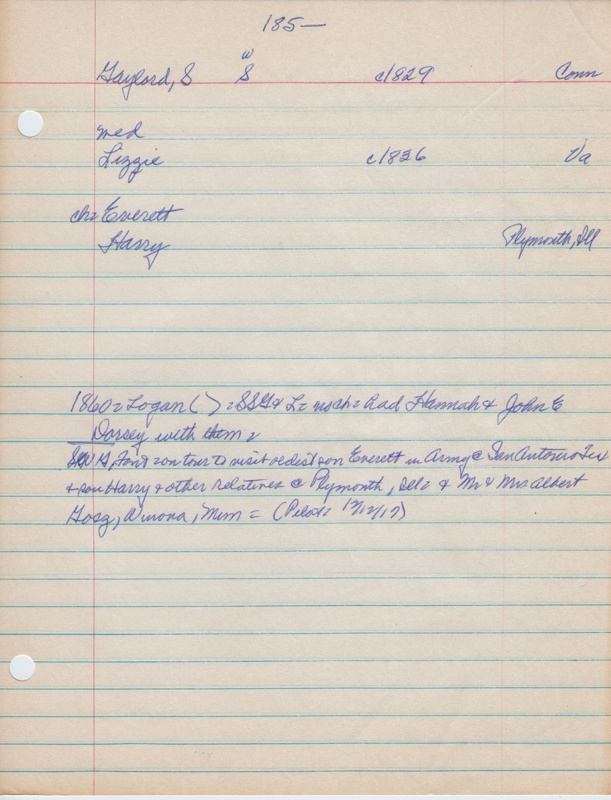 185—
Gaylord, S S w c1829 Conn
med
Lizzie c1836 Va
ch= Everett
Harry Plymouth, Ill
1860= Logan ( ) = SSG & L= no ch= had Hannah & John E
Dorsey with them=
G, on tour to visit oldest son Everett in Army @ San Antonio Tex
& son Harry & other relatives @ Plymouth, Ill= & Mr & Mrs Albert
Winona, = (Pilot= 12/12/17)